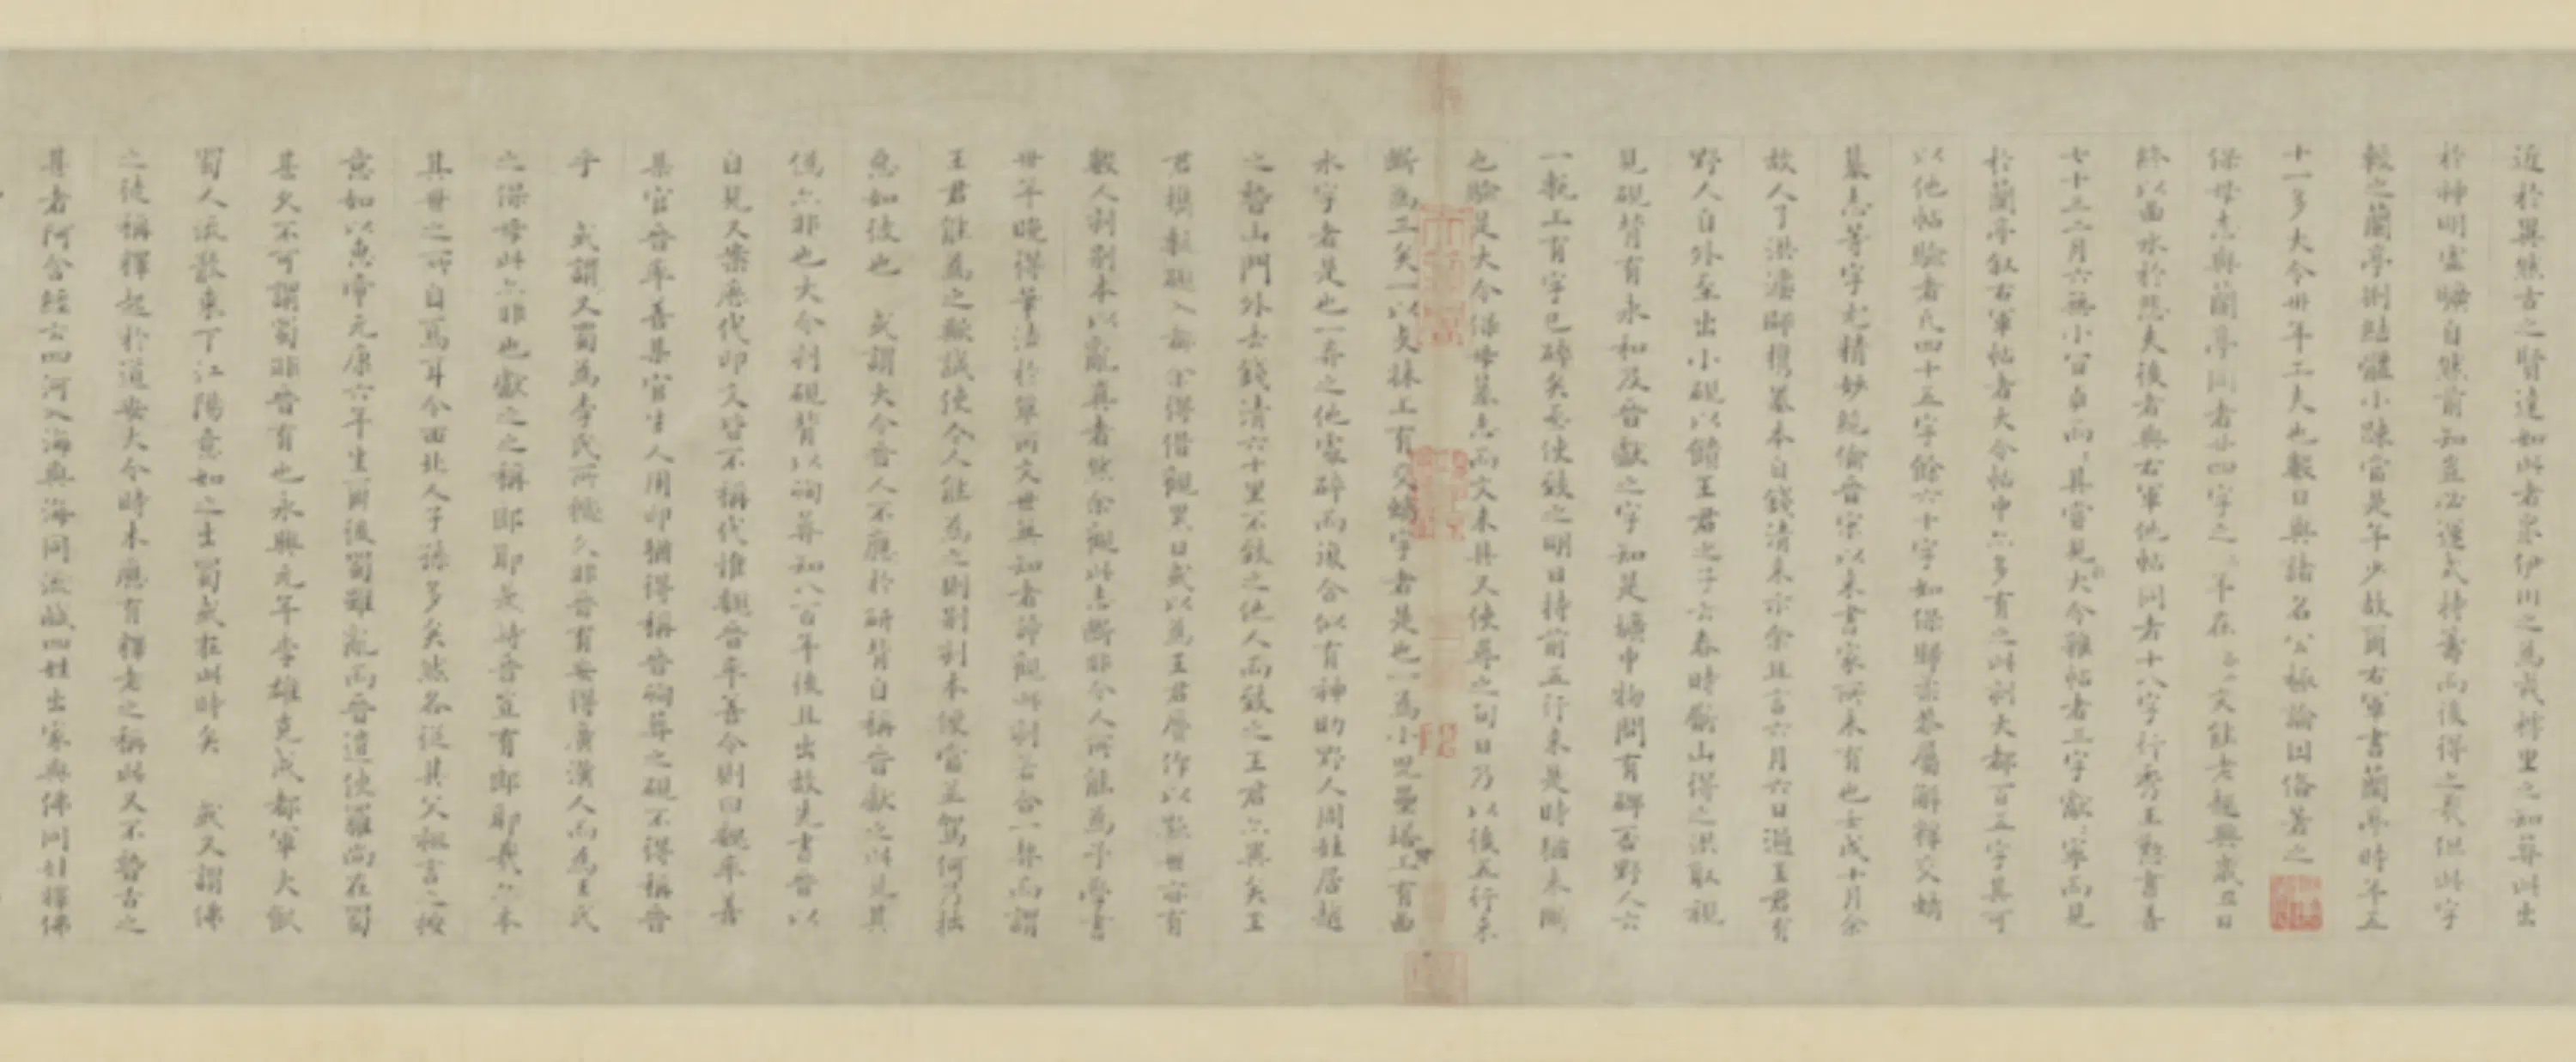 近於異然古之賢達如此者衆伊川之為戎樗里之知葬此出
於神明虛曠自然前知豈必運式持籌而後得之哉但此字
較之蘭亭則結體小踈當是年少故爾右軍書蘭亭時年五
十一多大令卅年工夫也數日與諸名公極論因俻著之
保母志與蘭亭同者廿四字之不在文能老趣興歲丑日
終以曲水於悲夫後者與右軍他帖同者十八字行秀王懃書善
七十三二月六無小宜貞而其當見大令雜帖者三字獻寧而見
於蘭亭叙右軍帖者大令帖中亦多有之此刻大都百五字其可
以他帖驗者凡四十五字餘六十字如保歸柔恭屬解釋交螭
墓志等字尤精妙絕倫晉宋以來書家所未有也壬戌十月余
故人了洪濤師攜墓本自錢清來示余且言六月六日過王君有
野人自外至出小硯以饋王君之子云春時斸山得之洪取視
見硯背有永和及晉獻之字知是壙中物問有碑否野人云
一甎上有字已碎矣亟使致之明日持前五行來是時猶未斷
也驗是大令保母墓志而文未具又使尋之旬日乃以後五行來
斷為三矣一以支牀上有交螭字者是也一為小兒壘塔上有曲
水字者是也一弃之他處碎而復合似有神助野人周姓居越
之稽山門外去錢清六十里不致之他人而致之王君亦異矣王
君攜甎硯入都余得借觀累日或以為王君贋作以欺世亦有
數人刻别本以亂真者然余觀此志斷非今人所能為予學書
卅年晚得筆法於單丙文世無知者諦觀此刻若合一契而謂
王君能為之歟誠使今人能為之則别刻本便當並駕何乃拙
惡如彼也 或謂大令晉人不應於硏背自稱晉獻之以見其
偽亦非也大令刻硯背以殉葬知八百年後且出故先書晉以
自見又案歷代印文皆不稱代惟魏晉率善令則曰魏率善
某官晉率善某官生人用印猶得稱晉殉葬之硯不得稱晉
乎 或謂又蜀為李氏所據久非晉有安得廣漢人而為王氏
之保母此亦非也獻之之稱郎耶炎時晉豈有郎耶哉亦本
其世之所自焉耳今西北人子孫多矣然各從其父祖言之按
意如以惠帝元康六年生爾後蜀雖亂而晉遣使羅尚在蜀
甚久不可謂蜀非晉有也永興元年李雄克成都軍大飢
蜀人流散東下江陽意如之去蜀或在此時矣 或又謂佛
之徒稱釋起於道安大令時未應有釋老之稱此又不稽古之
甚者阿含經云四河入海與海同流故四姓出家與佛同姓釋佛